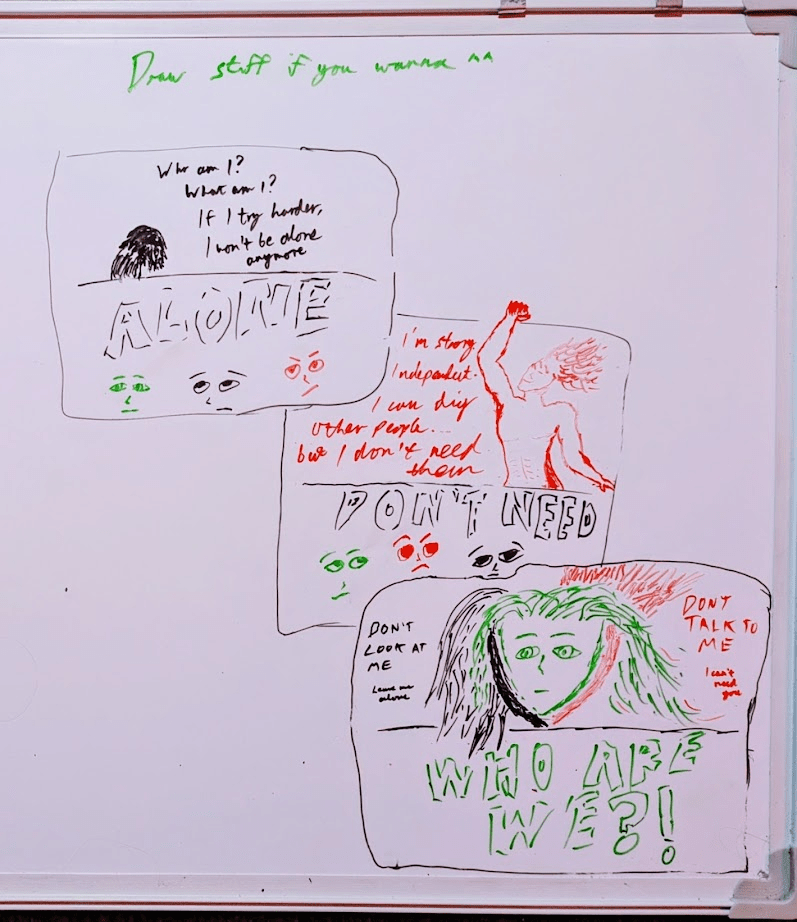 Draw stuff if you wanna ^^
Who am I?
What am I?
If I try harder,
I won't be alone
anymore
ALONE
I'm strong.
Independent.
I can dig
other people...
but I don't need
them
DON'T NEED
DON'T
LOOK AT
ME
Leave me
alone
DON'T
TALK TO
ME
I can't
need
you
WHO ARE
WE?!